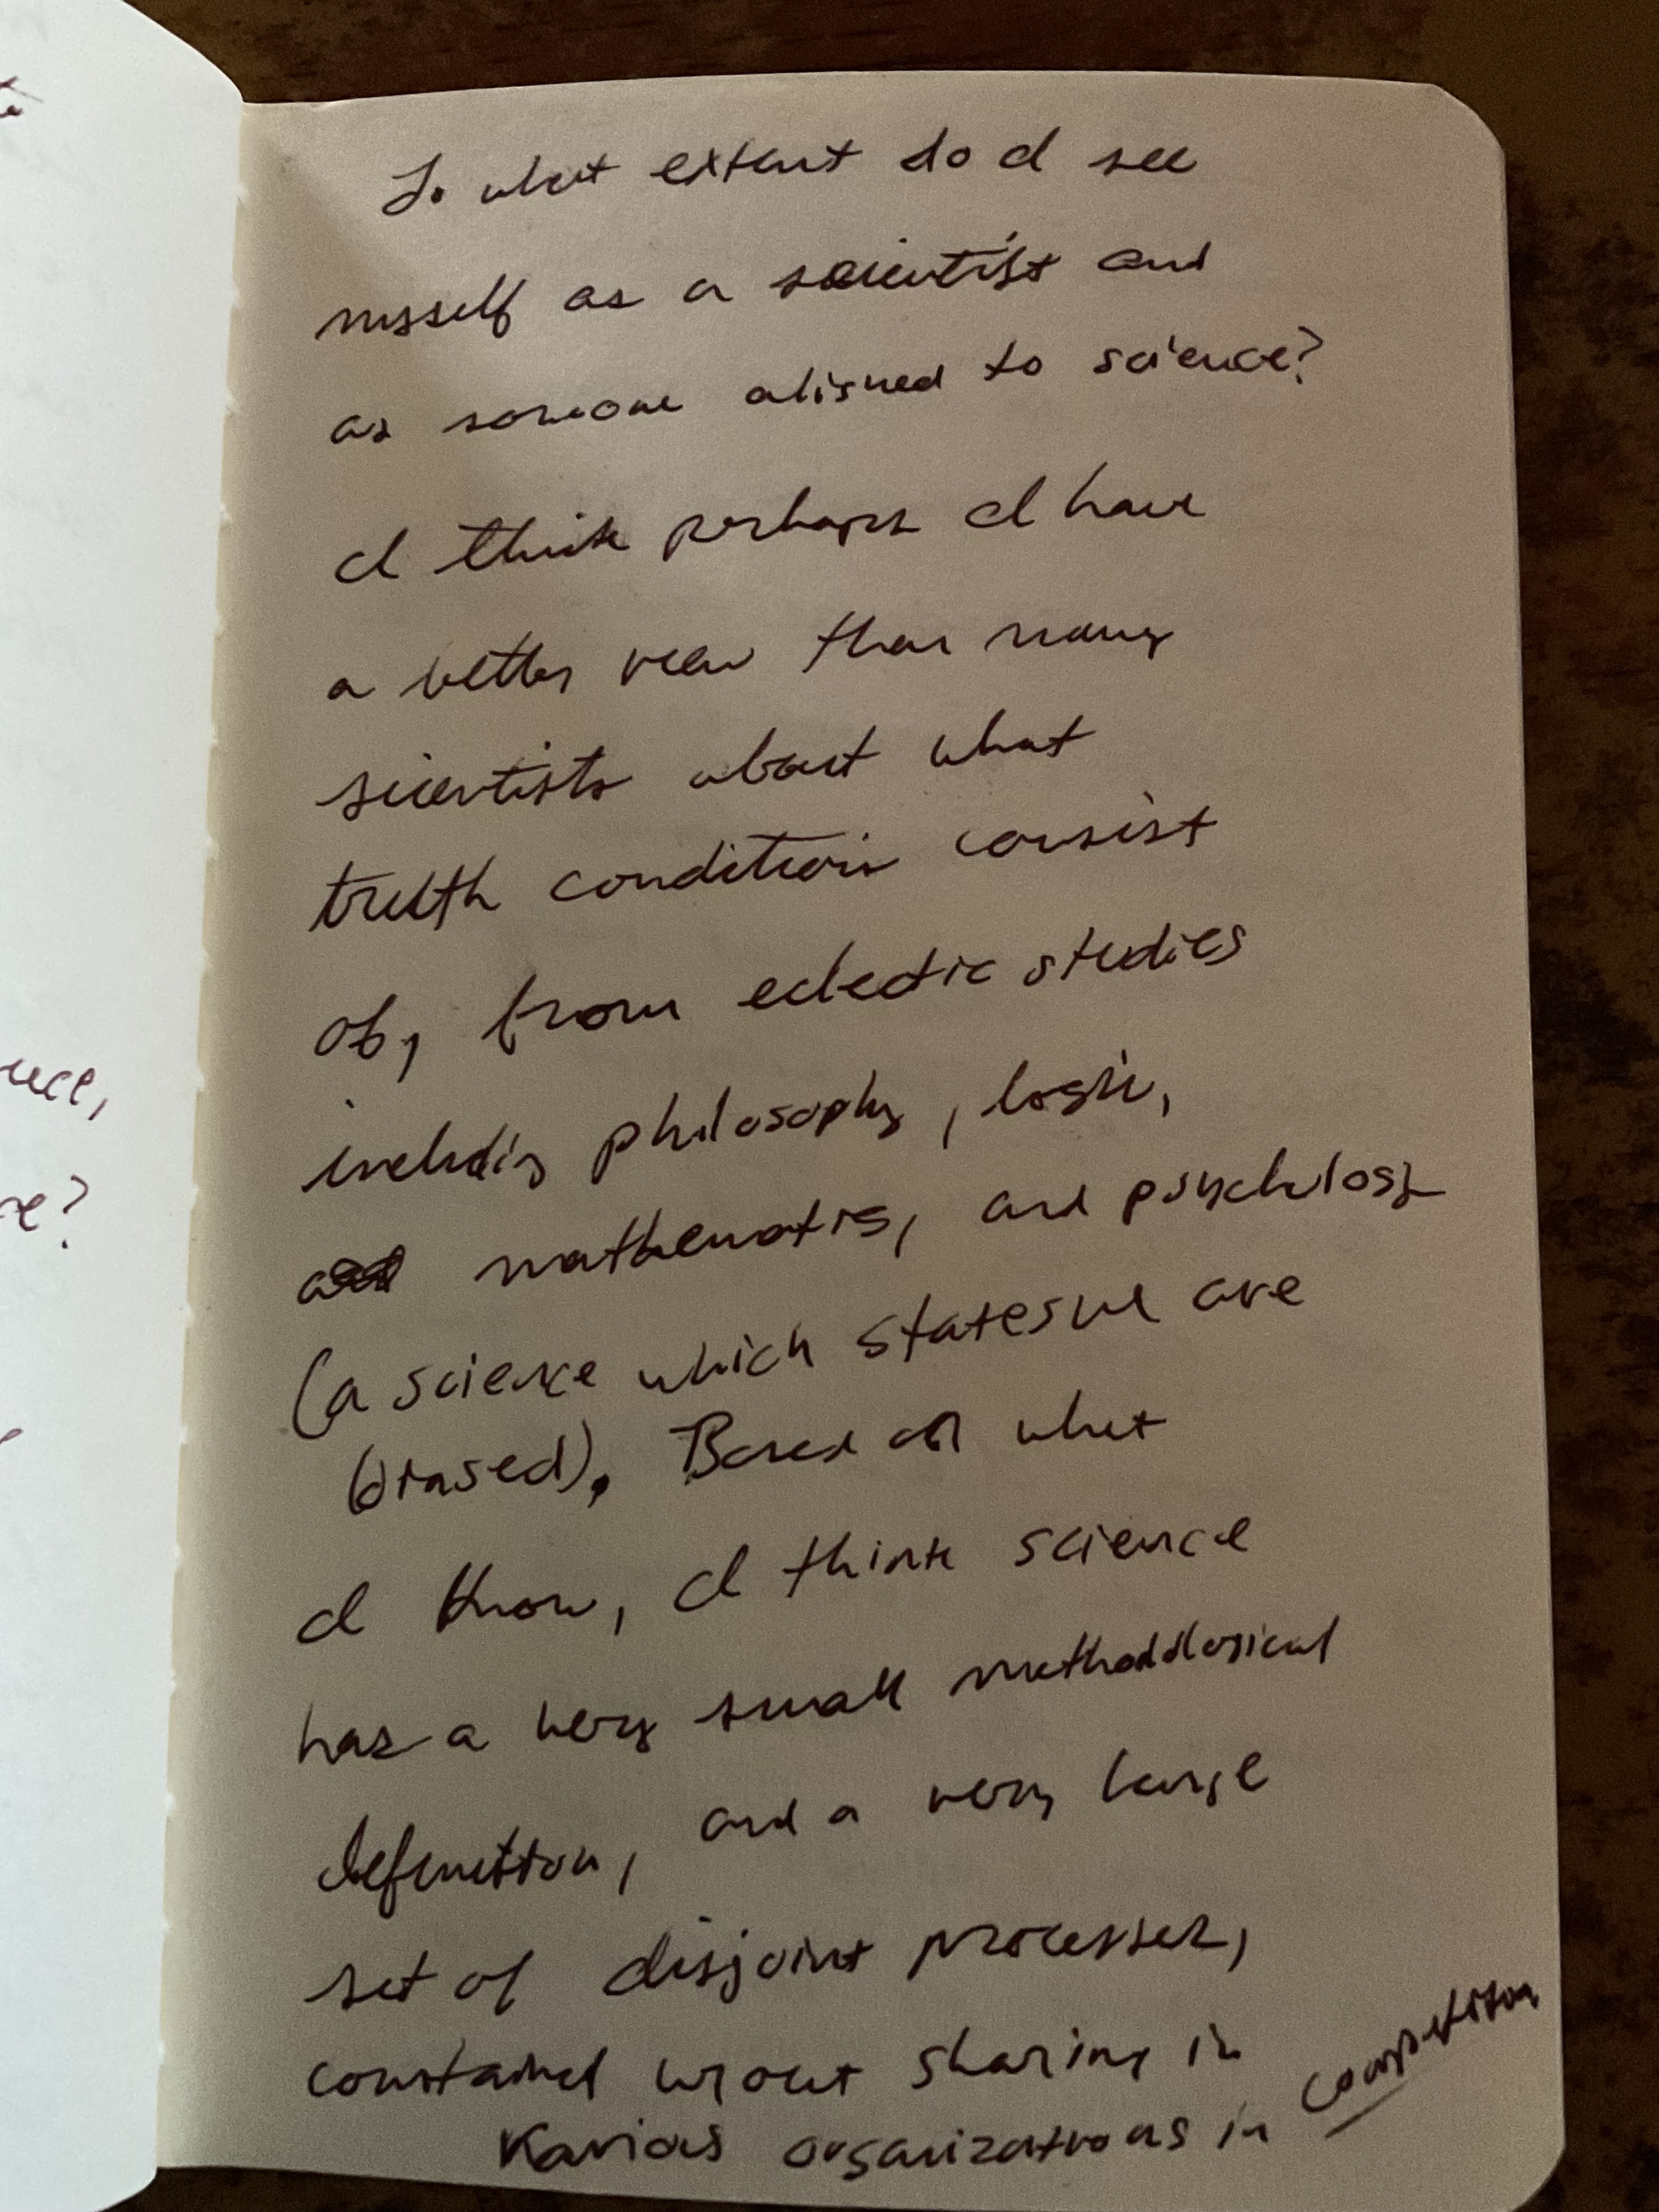 To what extent do I see
myself as a scientist and
as someone aligned to science?
I think perhaps I have
a better view than many
scientists about what
truth conditions consist
of, from eclectic studies
including philosophy, logic,
mathematics, and psychology
(a science which states we are
biased). Based on what
I know, I think science
has a very small methodological
definition, and a very large
set of disjoint processes,
contained w/out sharing in
various organizations in competition
uce,
re?